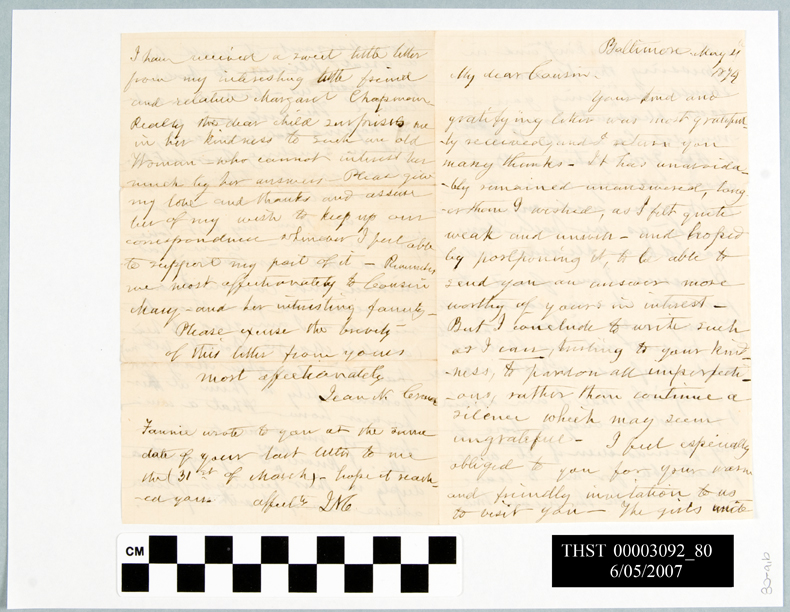 I have received a sweet little letter
from my interesting little friend
and relative Margaret Chapman.
Really the dear child surprises me
in her kindness to such an old
Woman - who cannot interest her
much by her answers - Please give
my love and thanks and assure
her of my wish to keep up our
correspondence whenever I feel able
to support my part of it - Remember
me most affectionately to Cousin
Mary - and her interesting family -
Please excuse the brevity
of this letter from yours
most affectionately
Jean N.
Fannie wrote to you at the same
date of your last letter to me
the (31st of March) - hope it reach-
-ed you. affectly
Baltimore May 21
1874
My dear Cousin -
Your kind and
gratifying letter was most grateful-
-ly received, and I return you
many thanks - It has unavoida-
-bly remained unanswered, long-
-er than I wished, as I felt quite
weak and unwell - and hoped
by postponing it, to be able to
send you an answer more
worthy of yours in interest -
But I conclude to write such
as I can, trusting to your kind-
-ness, to pardon all imperfecti-
-ons, rather than continue a
silence which may seem
ungrateful - I feel especially
obliged to you for your warm
and friendly invitation to us
to visit you - The girls unite
CM
THST 00003092_80
6/05/2007
82-a,b